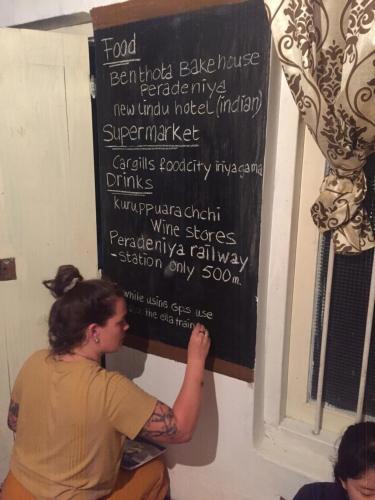 Food
Benthota Bakehouse
Peradeniya
new Lindu hotel (indian)
Supermarket
Cargills foodcity iriyagama
Drinks
kuruppuarachchi
Wine stores
Peradeniya railway
-station only 500m.
while using Gps use
the ella train